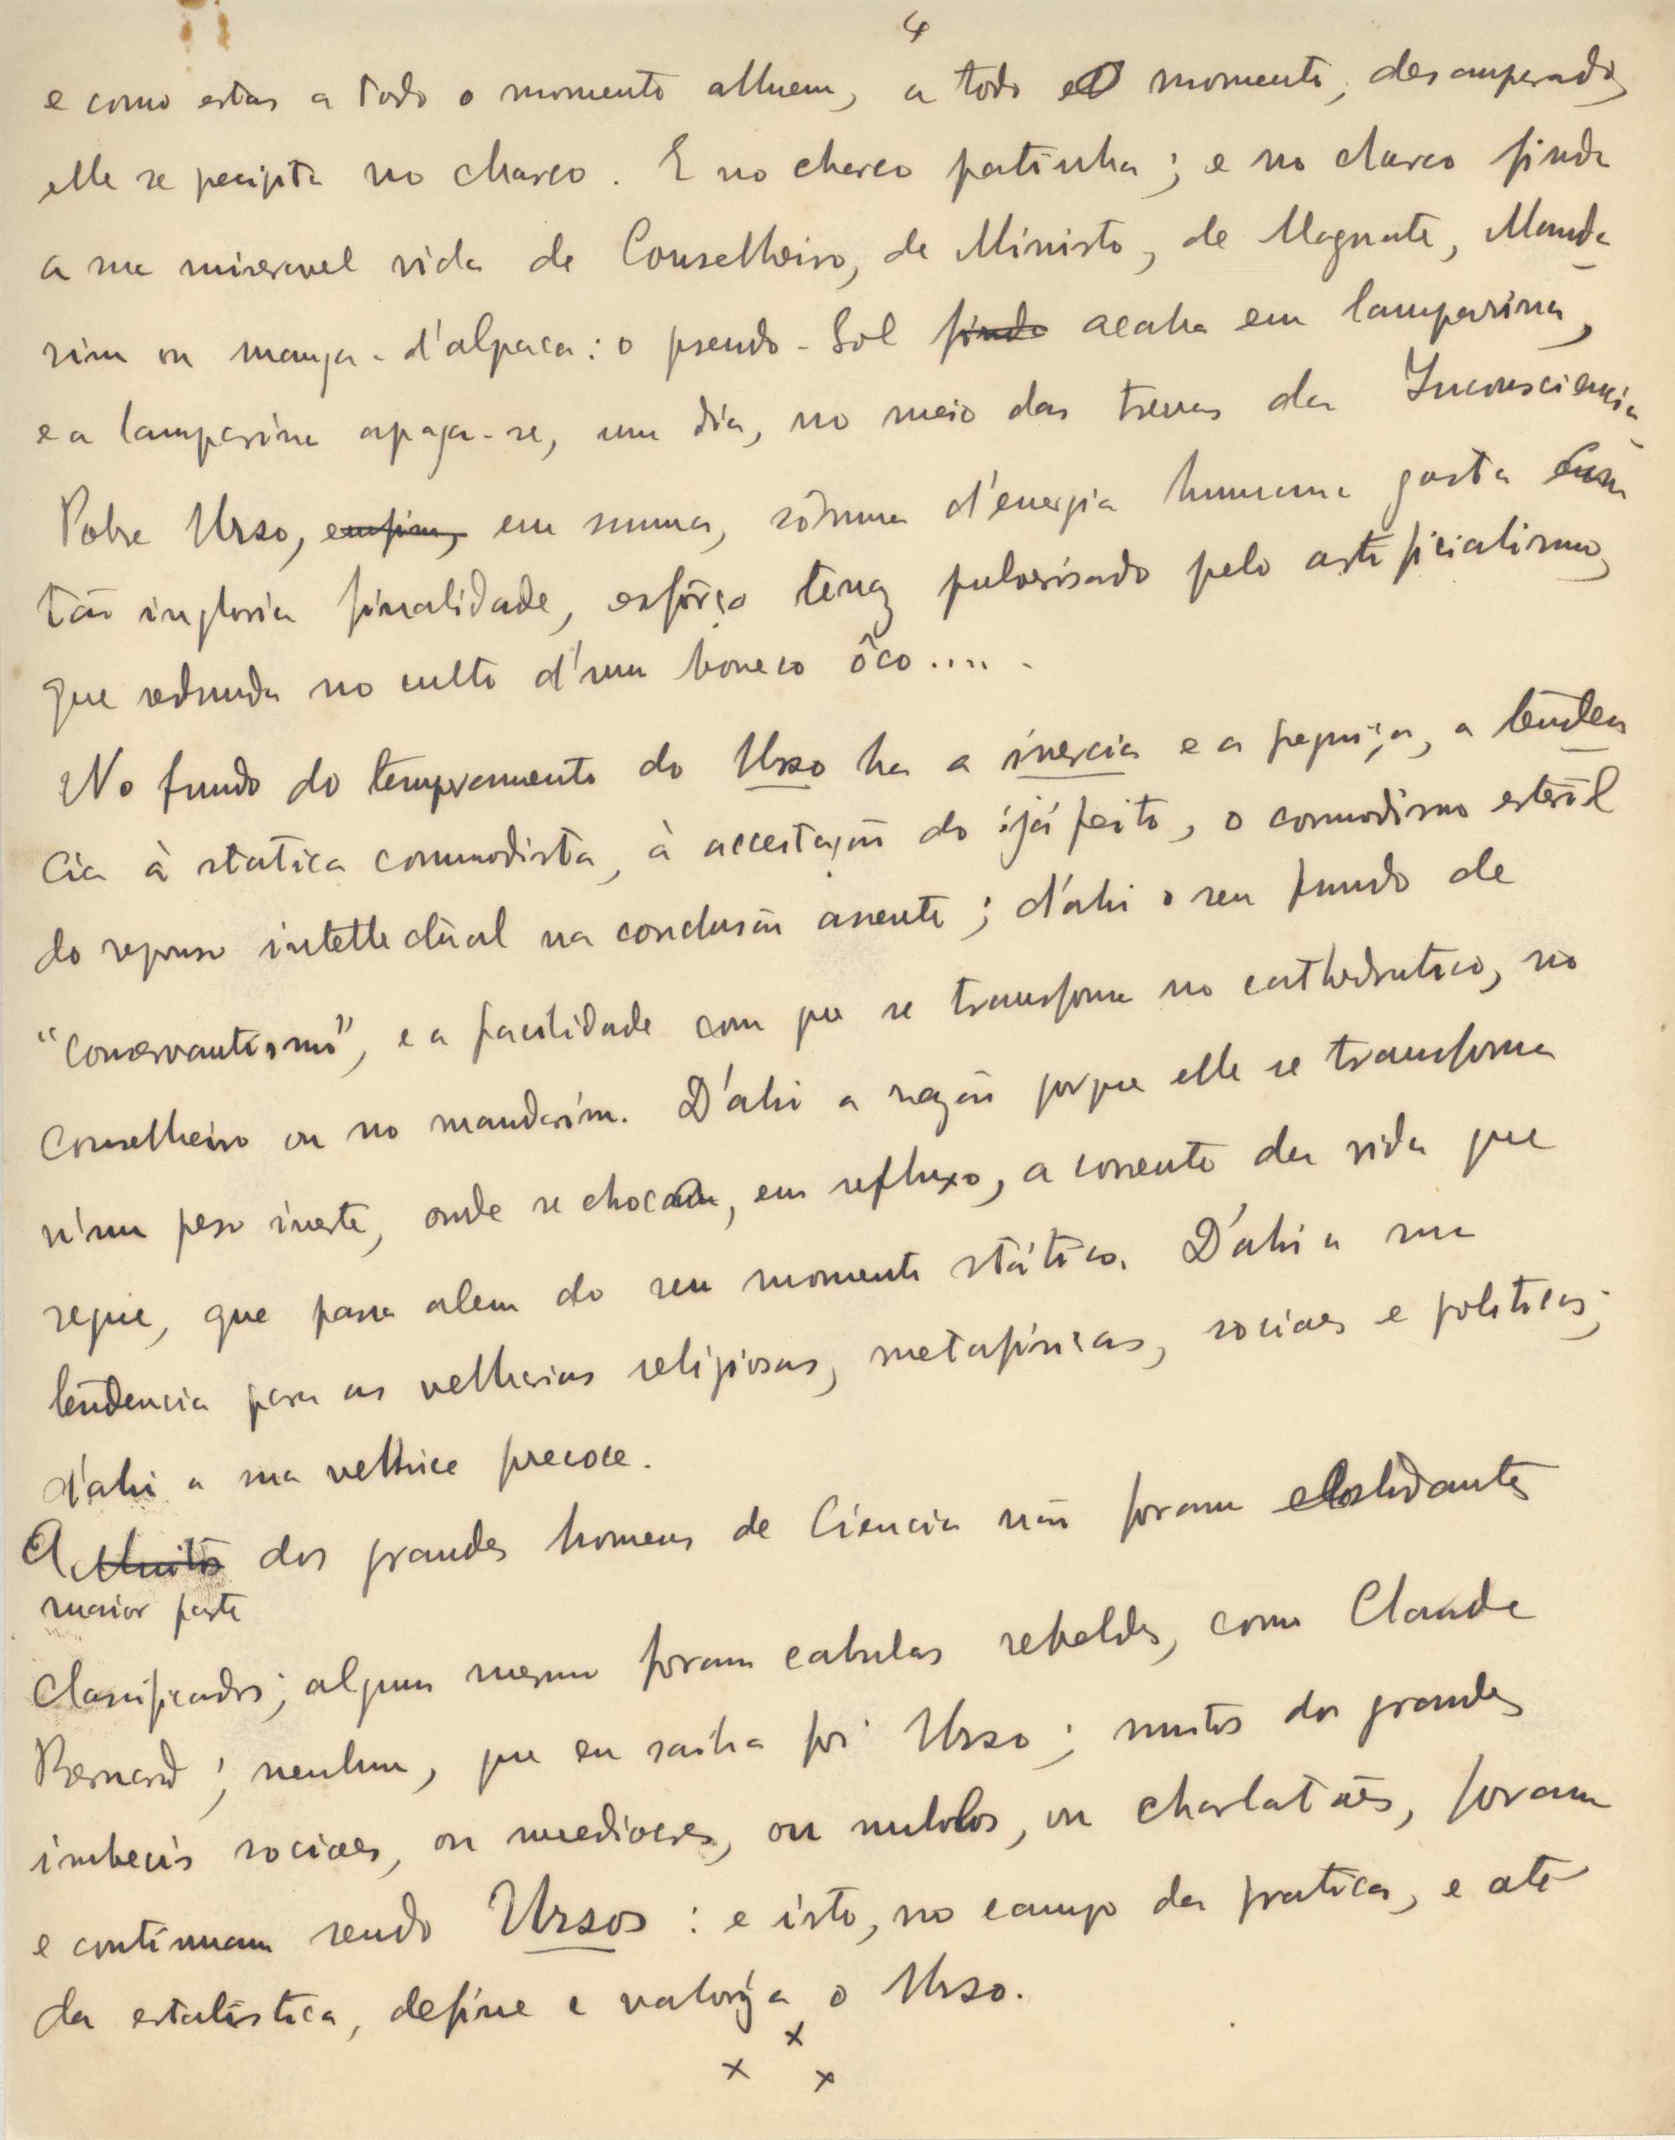 4
e como estas a todo o momento alluem, a todo o momento, desamparado,
elle se precipita no charco. E no charco patinha; e no charco finda
a sua miseravel vida de Conselheiro, de Ministro, de Magnate, Manda
rim ou manga-d'alpaca: o pseudo-Sol finda acaba em lamparina,
e a lamparina apaga-se, um dia, no meio das trevas da Inconsciencia.
Pobre Urso, emfim, em summa, sômma d'energia humana gasta com
tão ingloria finalidade, esfôrço tenaz pulverisado pelo artificialismo,
que redunda no culto d'um boneco ôco.....
No fundo do temperamento do Urso ha a inercia e a preguiça, a tenden
cia à statica commodista, à acceitação do já feito, o comodismo esteril
do repouso intellectual na conclusão assente; d'ahi o seu fundo de
"conservantismo", e a facilidade com que se transforma no cathedratico, no
Conselheiro ou no mandarim. D'ahi a razão porque elle se transforma
n'um peso inerte, onde se choca, em refluxo, a corrente da vida que
segue, que passa alem do seu momento stático. D'ahi a sua
tendencia para as velharias religiosas, metafisicas, sociaes e politicas;
d'ahi a sua velhice precoce.
A Muitos dos grandes homens de Ciencia não foram estudantes
maior parte
classificados; alguns mesmo foram cabulas rebeldes, como Claude
Bernard; nenhum, que eu saiba foi Urso; muitos dos grandes
imbecis sociaes, ou mediocres, ou nullos, ou charlatães, foram
e continuam sendo Ursos: e isto, no campo da pratica, e até
da estatistica, define e valoriza o Urso.
x
x x